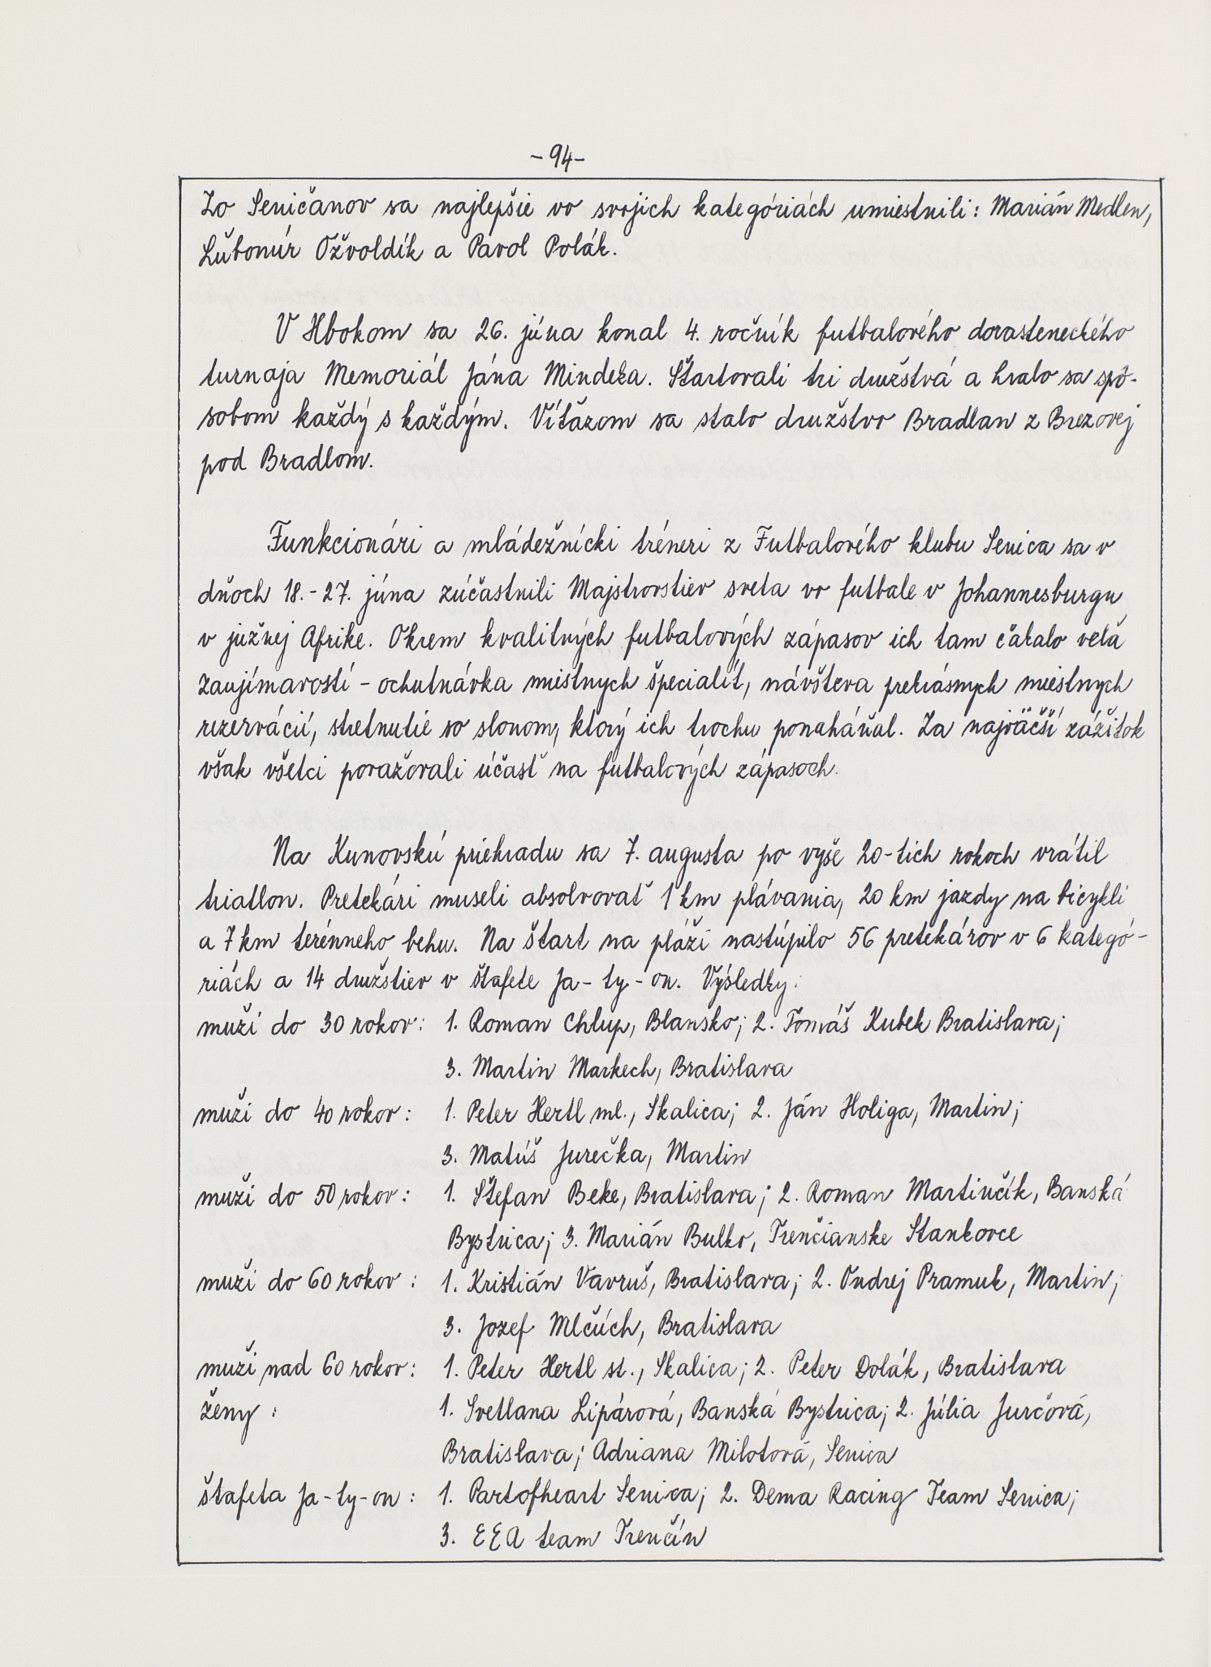 -94-
Zo Seničanov sa najlepšie vo svojich kategóriách umiestnili: Marián Medlen,
Ľubomír Ožvoldík a Pavol Polák.
V Hlbokom sa 26. júna konal 4. ročník futbalového dorasteneckého
turnaja Memoriál Jána Mindeka. Štartovali tri družstvá a hralo sa spô-
sobom každý s každým. Víťazom sa stalo družstvo Bradlan z Brezovej
pod Bradlom.
Funkcionári a mládežnícki tréneri z Futbalového klubu Senica sa v
dňoch 18.-27. júna zúčastnili Majstrovstiev sveta vo futbale v Johannesburgu
v južnej Afrike. Okrem kvalitných futbalových zápasov ich tam čakalo veľa
zaujímavostí - ochutnávka miestnych špecialít, návšteva prekrásnych miestnych
rezervácií, stretnutie so slonom, ktorý ich trochu ponaháňal. Za najväčší zážitok
však všetci považovali účasť na futbalových zápasoch.
Na Kunovskú priehradu sa 7. augusta po vyše 20-tich rokoch vrátil
triatlon. Pretekári museli absolvovať 1 km plávania, 20 km jazdy na bicykli
a 7 km terénneho behu. Na štart na pláži nastúpilo 56 pretekárov v 6 kategó-
riách a 14 družstiev v štafete Ja-ty-on. Výsledky:
muži do 30 rokov: 1. Roman Chlup, Blansko; 2. Tomáš Kubek Bratislava;
3. Martin Markech, Bratislava
muži do 40 rokov: 1. Peter Hertl ml., Skalica; 2. Ján Holiga, Martin;
3. Matúš Jurečka, Martin
muži do 50 rokov: 1. Štefan Beke, Bratislava; 2. Roman Martinčík, Banská
Bystrica; 3. Marián Bulko, Trenčianske Stankovce
muži do 60 rokov: 1. Kristián Vavruš, Bratislava; 2. Ondrej Pramuk, Martin;
3. Jozef Mlčúch, Bratislava
muži nad 60 rokov: 1. Peter Hertl st., Skalica; 2. Peter Dolák, Bratislava
ženy: 1. Svetlana Lipárová, Banská Bystrica; 2. Júlia Jurčová,
Bratislava; Adriana Milotová, Senica
štafeta Ja-ty-on: 1. Partofheart Senica; 2. Dema Racing Team Senica;
3. EEA team Trenčín